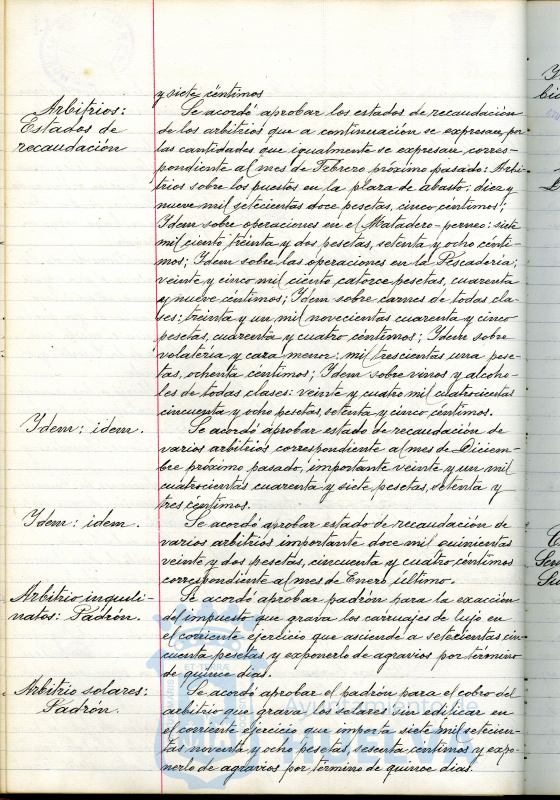 y siete céntimos
Arbitrios:
Estados de
recaudación
Se acordó aprobar los estados de recaudación
de los arbitrios que a continuación se expresan, por
las cantidades que igualmente se expresan, corres-
pondiente al mes de Febrero próximo pasado: Arbi-
trios sobre los puestos en la plaza de abasto, diez y
nueve mil setecientas doce pesetas, cinco céntimos;
Ydem sobre operaciones en el Matadero-perneo: siete
mil ciento treinta y dos pesetas, setenta y ocho cénti-
mos; Ydem sobre las operaciones en la Pescadería;
veinte y cinco mil ciento catorce pesetas, cuarenta
y nueve céntimos; Ydem sobre carnes de todas cla-
ses: treinta y un mil novecientas cuarenta y cinco
pesetas, cuarenta y cuatro céntimos; Ydem sobre
volatería y caza menor: mil trescientas una pese-
tas, ochenta céntimos; Ydem sobre vinos y alcoho-
les de todas clases: veinte y cuatro mil cuatrocientas
cincuenta y ocho pesetas, setenta y cinco céntimos.
Ydem: idem.
Se acordó aprobar estado de recaudación de
varios arbitrios correspondiente al mes de Diciem-
bre próximo pasado, importante veinte y un mil
cuatrocientas cuarenta y siete pesetas, setenta y
tres céntimos.
Ydem: idem.
Se acordó aprobar estado de recaudación de
varios arbitrios importante doce mil quinientas
veinte y dos pesetas, cincuenta y cuatro céntimos
correspondiente al mes de Enero último.
Arbitrio inquili-
natos: Padrón.
Se acordó aprobar padrón para la exacción
del impuesto que grava los carruajes de lujo en
el corriente ejercicio que asciende a setecientas cin-
cuenta pesetas y exponerlo de agravios por término
de quince días.
Arbitrio solares:
Padrón.
Se acordó aprobar el padrón para el cobro del
arbitrio que grava los solares sin edificar en
el corriente ejercicio que importa siete mil setecien-
tas noventa y ocho pesetas, sesenta céntimos y expo-
nerlo de agravios por término de quince días.
Ayuntamiento de
HUELVA